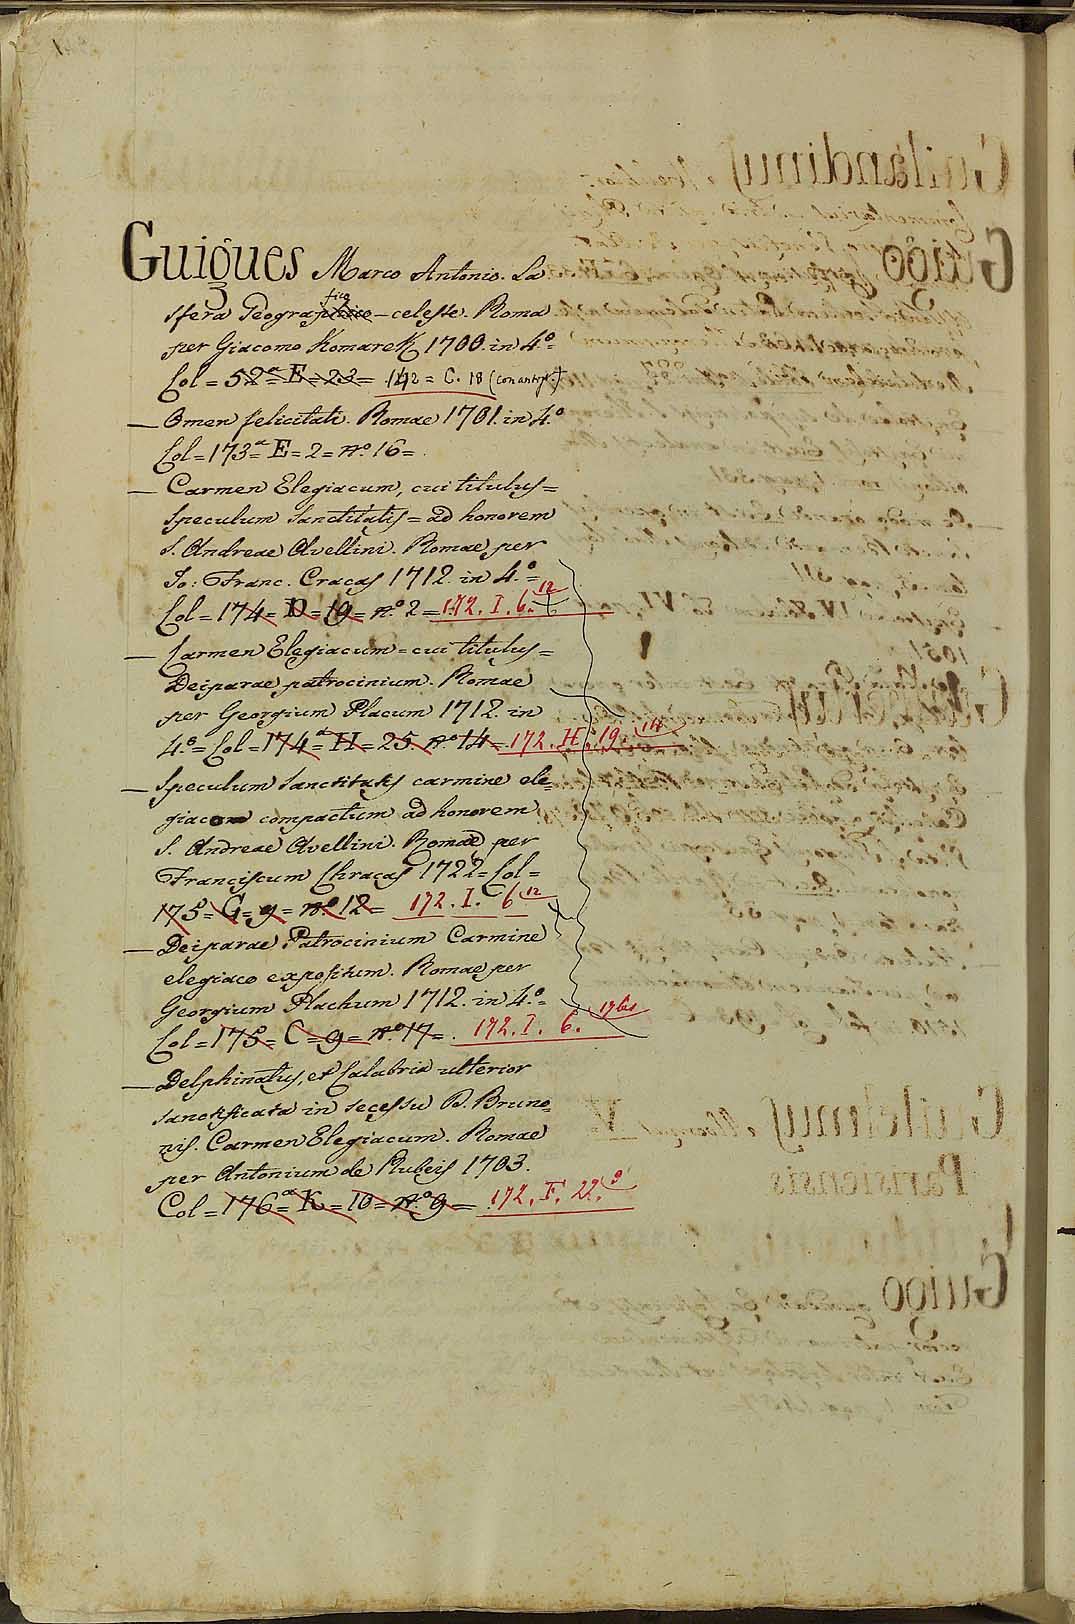 Guigues Marco Antonio. La
sfera Geographico fico - celeste. Roma
per Giacomo Komarek 1700. in 4.º =
Col = 52ª = E = 23 = 142 = C. 18 (con antip.)
— Omen felicitati. Romae 1701. in 4.º
Col = 173ª = E = 2 = nº 16 =
— Carmen Elegiacum, cui titulus =
Speculum Sanctitatis = ad honorem
S. Andreae Avellini. Romae per
Io: Franc. Cracas 1712. in 4.º =
Col = 174 = D = 19 = nº 2 = 172. I. 6. 12
— Carmen Elegiacum = cui titulus =
Deiparae patrocinium. Romae
per Georgium Placum 1712. in
4.º = Col = 174ª = H = 25 nº 14 = 172. H. 19. 14
— Speculum Sanctitatis carmine ele=
giaco compactum ad honorem
S. Andreae Avellini. Romae per
Franciscum Chracas 1722 = Col =
175 = G = 9 = nº 12 = 172. I. 6 12
— Deiparae Patrocinium Carmine
elegiaco expositum. Romae per
Georgium Plachum 1712. in 4.º =
Col = 175 = C = 9 = nº 17 = 172. I. 6. 17bis
— Delphinatus, et Calabria ulterior
sanctificata in secessu B. Bruno=
nis. Carmen Elegiacum. Romae
per Antonium de Rubeis 1703.
Col = 176ª = K = 10 = nº 9 = 172. F. 22. 9